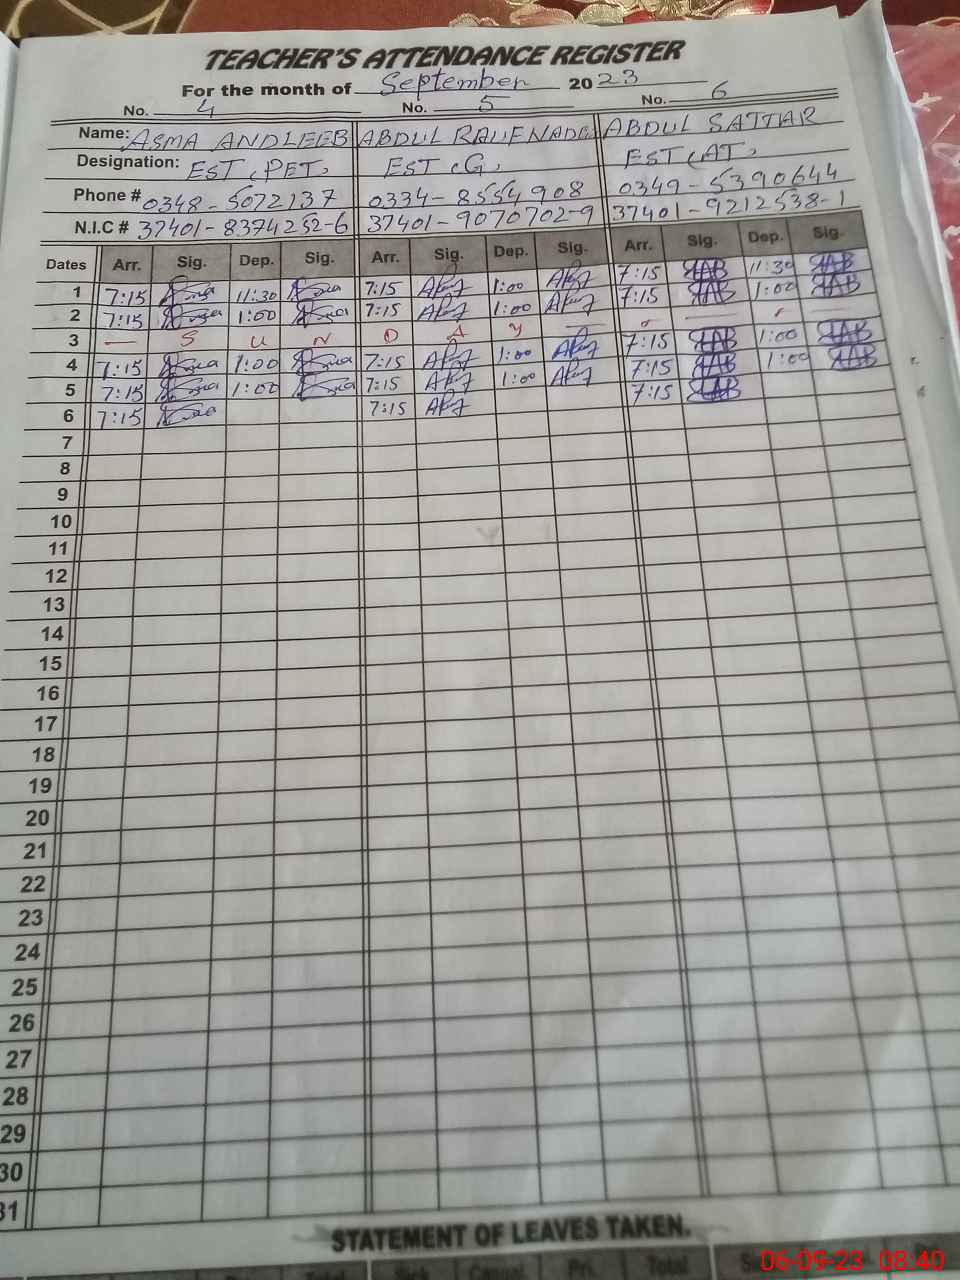 TEACHER'S ATTENDANCE REGISTER
For the month of September 2023
No. 4 No. 5 No. 6
Name: ASMA ANDLEEB ABDUL RAUF ABDUL SATTAR
Designation: EST (PET) EST (G) EST (AT)
Phone # 0348-5072137 0334-8554908 0349-5390644
N.I.C # 37401-8374252-6 37401-9070702-9 37401-9212538-1
Dates Arr. Sig. Dep. Sig. Arr. Sig. Dep. Sig. Arr. Sig. Dep. Sig.
1 7:15 Asma 11:30 Asma 7:15 1:00 7:15 SAB 11:30 SAB
2 7:15 Asma 1:00 Asma 7:15 1:00 7:15 SAB 1:00 SAB
3 — S U N D A Y — — —
4 7:15 Asma 1:00 Asma 7:15 1:00 7:15 SAB 1:00 SAB
5 7:15 Asma 1:00 Asma 7:15 1:00 7:15 SAB 1:00 SAB
6 7:15 Asma 7:15 7:15 SAB
7
8
9
10
11
12
13
14
15
16
17
18
19
20
21
22
23
24
25
26
27
28
29
30
31
STATEMENT OF LEAVES TAKEN.
Total Sick Casual Pri. Total
06-09-23 08:40